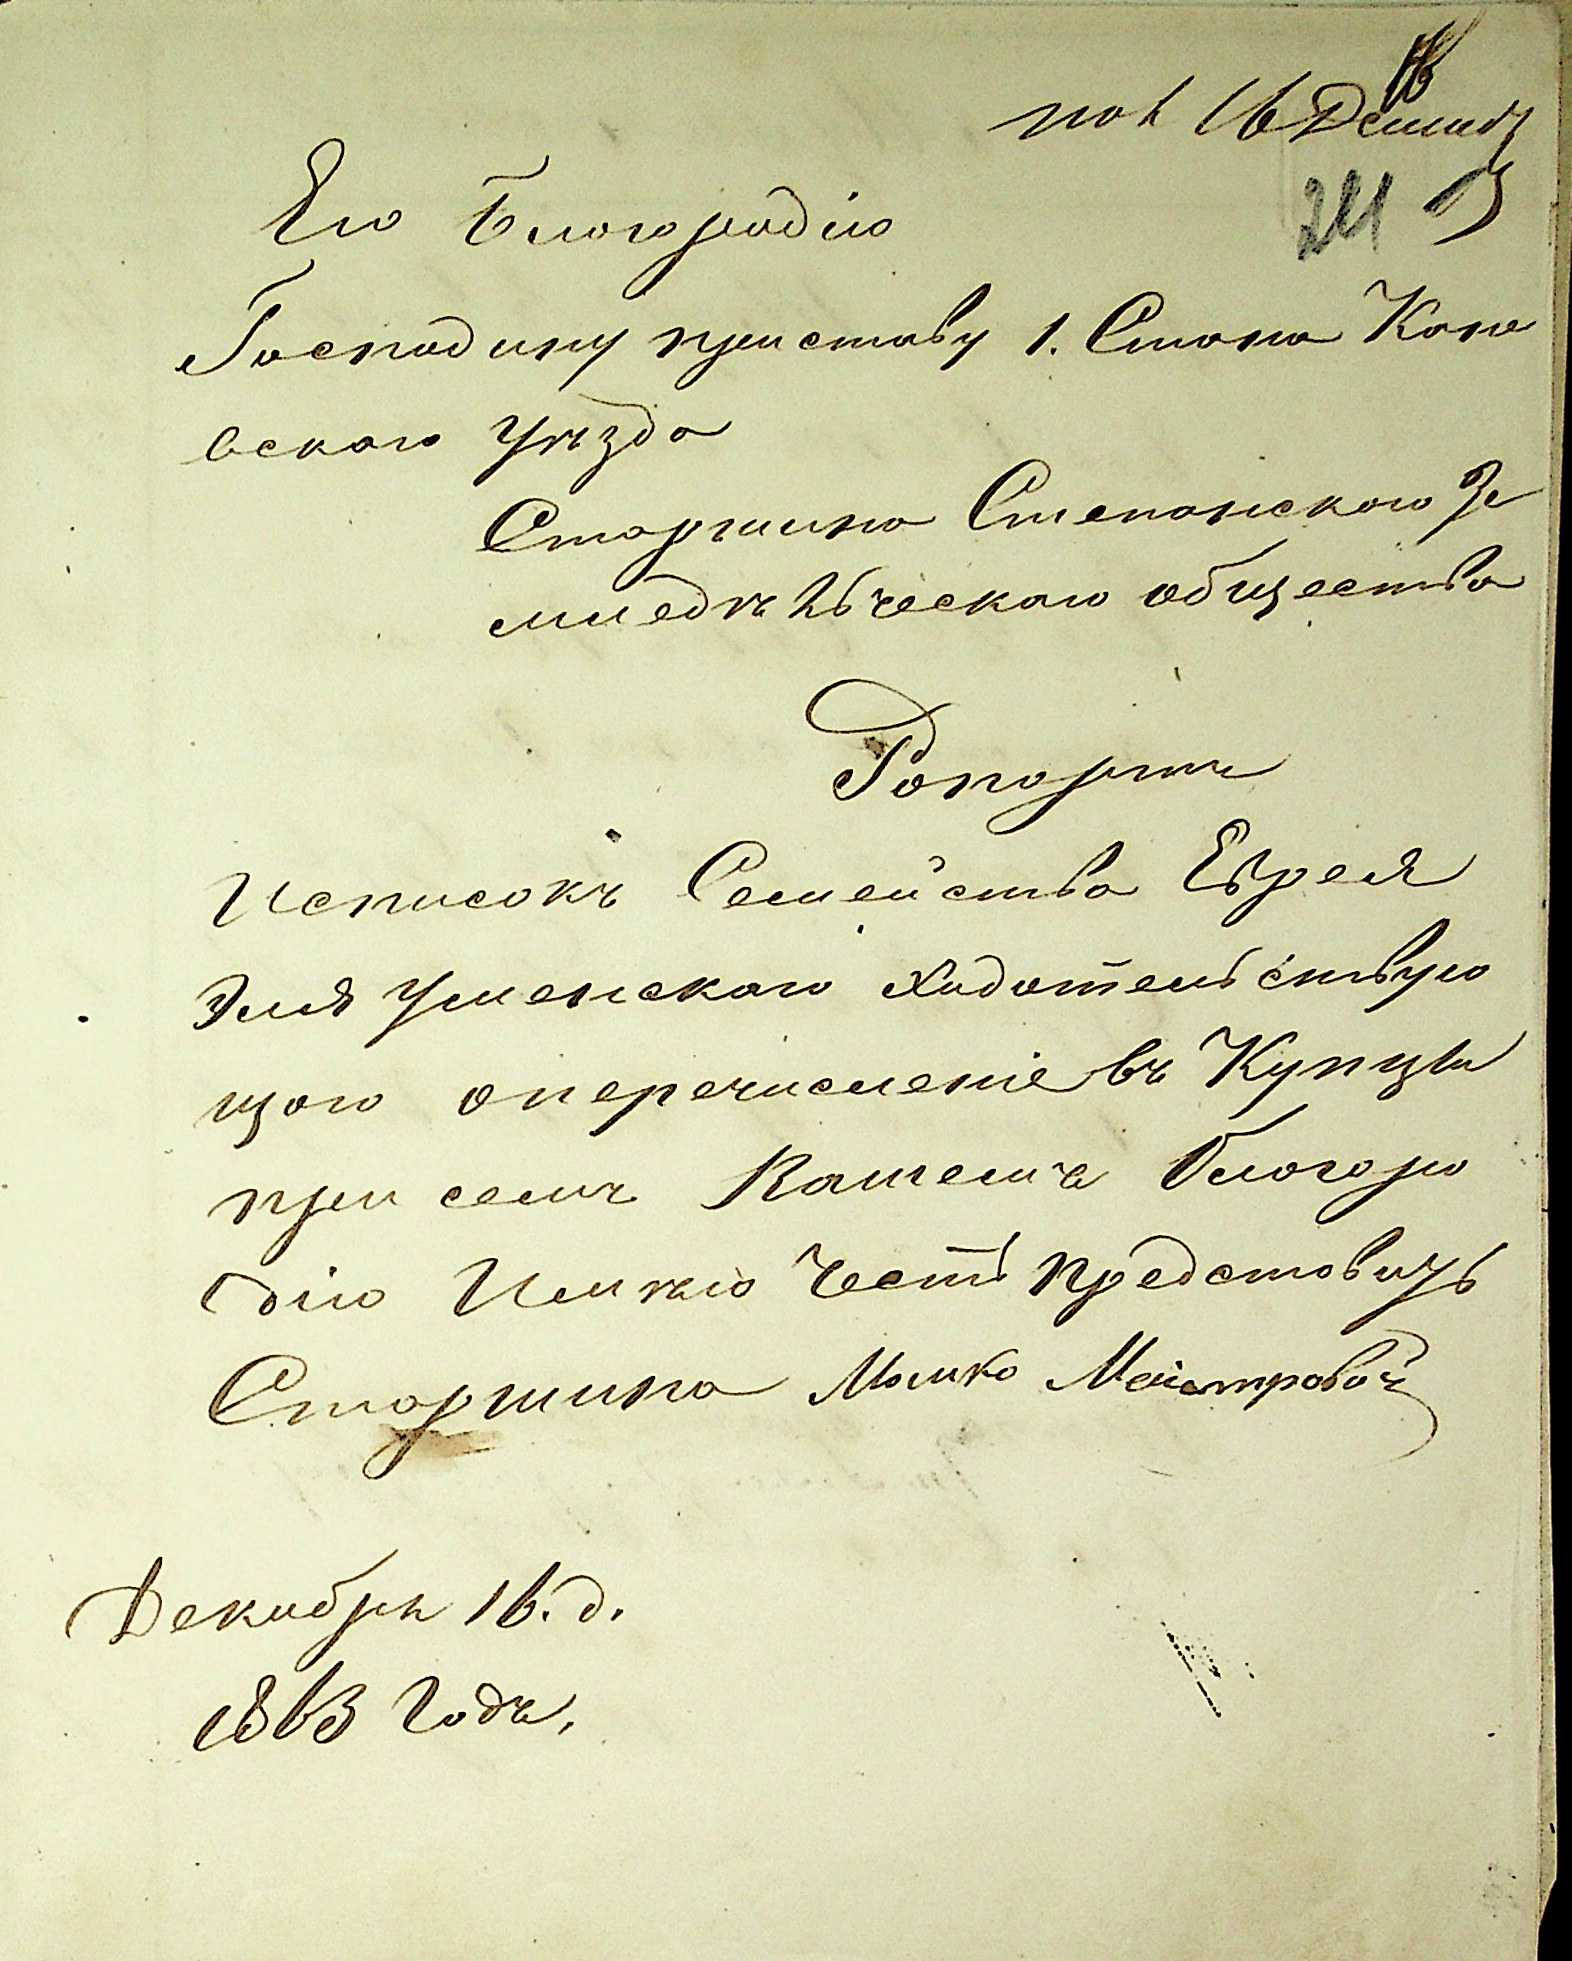 пол 16 Декаб
241
Его Благородію
Господину приставу 1. Стана Кане
вскаго Уѣзда
Старшина Степанскаго Зе
мледѣльческаго общества
Рапортъ
Исписокъ Семейства Еврея
Эля Уменскаго Ходательствую
щаго оперечисленіе въ Купцы
при семъ Вашему Благоро
дію Имѣю Честь представить
Старшина Мошко
Декабря 16. д.
1863 Годъ.